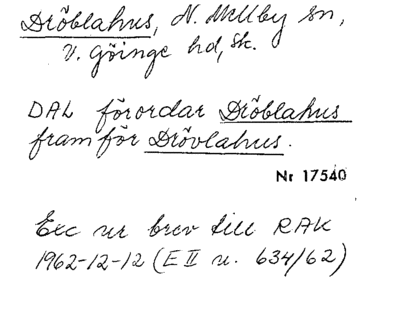 Dröblahus, N. Mellby sn,
V. Göinge hd, Sk.
DAL förordar Dröblahus
framför Drövlahus.
Nr 17540
Exc ur brev till RAK
1962-12-12 (E II u. 634/62)